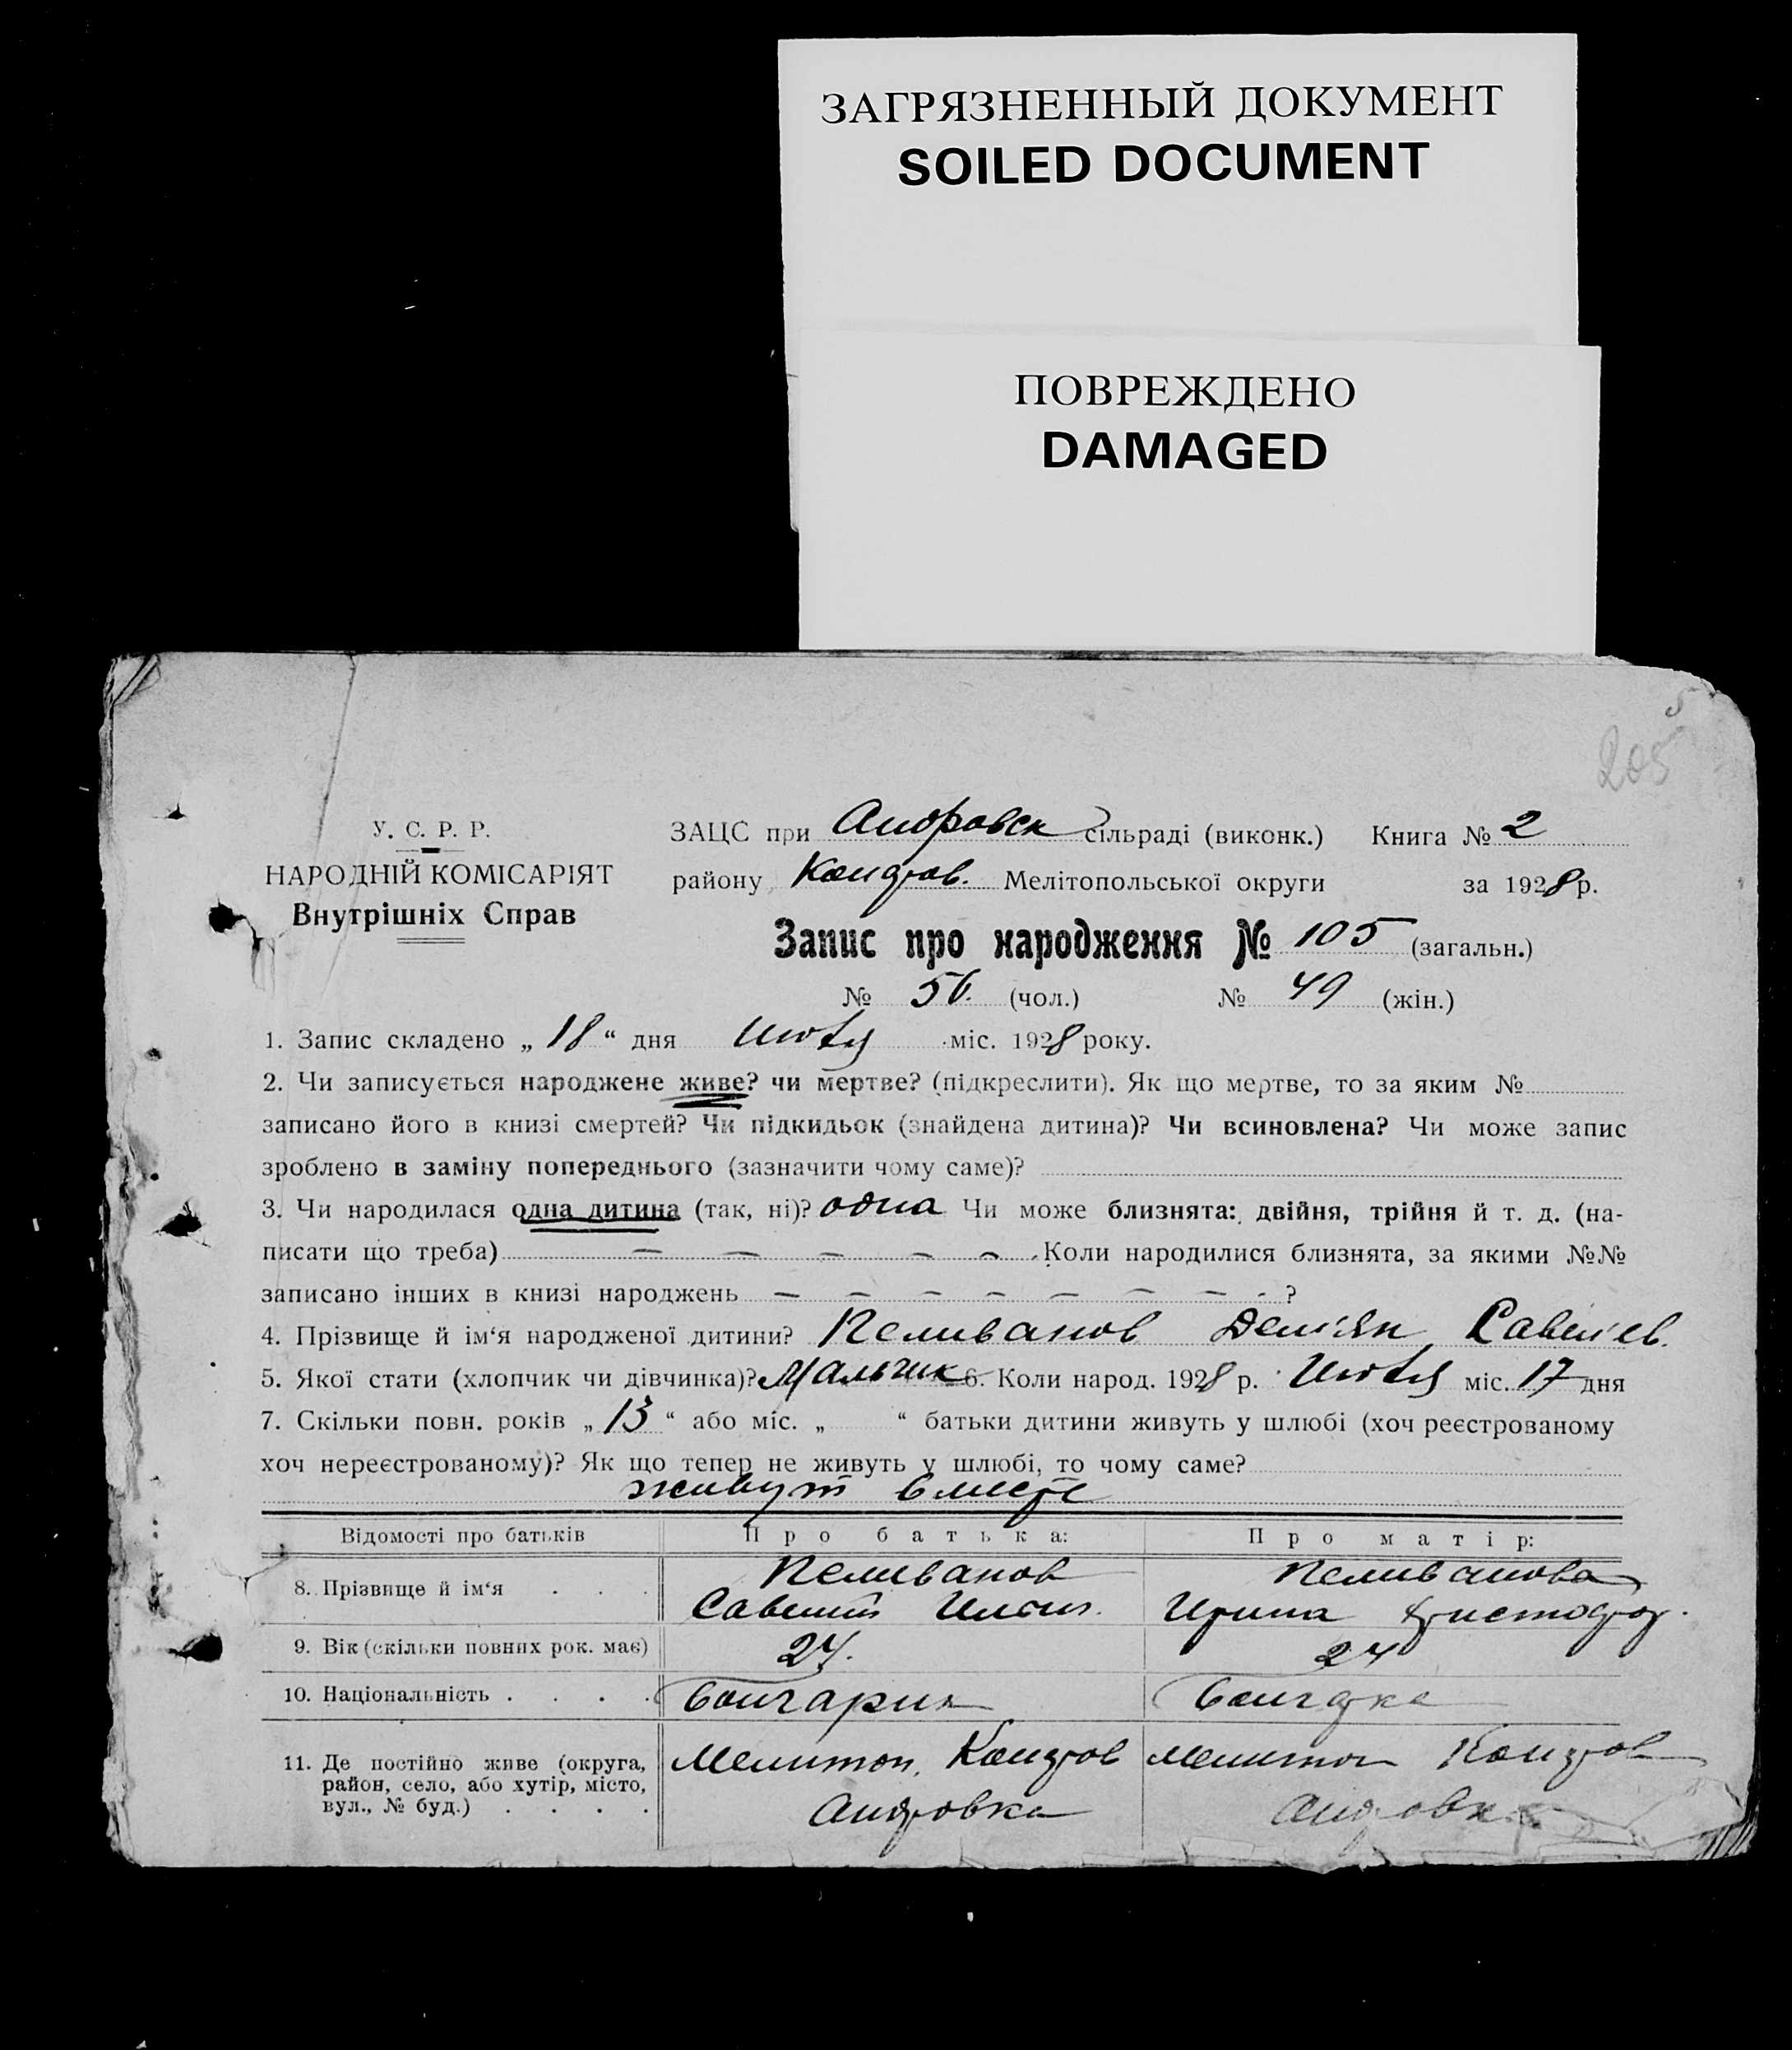 ЗАГРЯЗНЕННЫЙ ДОКУМЕНТ
SOILED DOCUMENT
ПОВРЕЖДЕНО
DAMAGED
205
У. С. Р. Р.
НАРОДНІЙ КОМІСАРІЯТ
Внутрішніх Справ
ЗАЦС при Андровск сільраді (виконк.) Книга № 2
району Мелітопольської округи за 1928 р.
Запис про народження № 105 (загальн.)
№ 56. (чол.) № 49 (жін.)
1. Запис складено „ 18 “ дня Июля міс. 1928 року.
2. Чи записується народжене живе? чи мертве? (підкреслити). Як що мертве, то за яким №
записано його в книзі смертей? Чи підкидьок (знайдена дитина)? Чи всиновлена? Чи може запис
зроблено в заміну попереднього (зазначити чому саме)?
3. Чи народилася одна дитина (так, ні)? одна Чи може близнята: двійня, трійня й т. д. (на-
писати що треба) — — — — — Коли народилися близнята, за якими №№
записано інших в книзі народжень — — — — — — — ?
4. Прізвище й ім‘я народженої дитини? Пеливанов Демьян Савельев.
5. Якої стати (хлопчик чи дівчинка)? Мальчик 6. Коли народ. 1928 р. Июля міс. 17 дня
7. Скільки повн. років „ 13 “ або міс. „ “ батьки дитини живуть у шлюбі (хоч реєстрованому
хоч нереєстрованому)? Як що тепер не живуть у шлюбі, то чому саме?
живут вместе
Відомості про батьків Про батька: Про матір:
8. Прізвище й ім‘я . . . Пеливанов Пеливанова
Савелий Ирина Христофор.
9. Вік (скільки повних рок. має) 24
10. Національність . . . . Болгарин Болгарка
11. Де постійно живе (округа, Мелитоп. Мелитоп
район, село, або хутір, місто,
вул., № буд.) . . . . Андровка Андровк